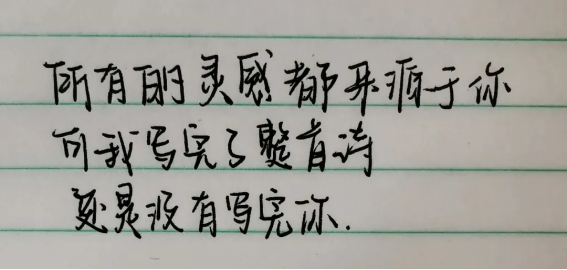 所有的灵感都来源于你
可我写完了整首诗
还是没有写完你.